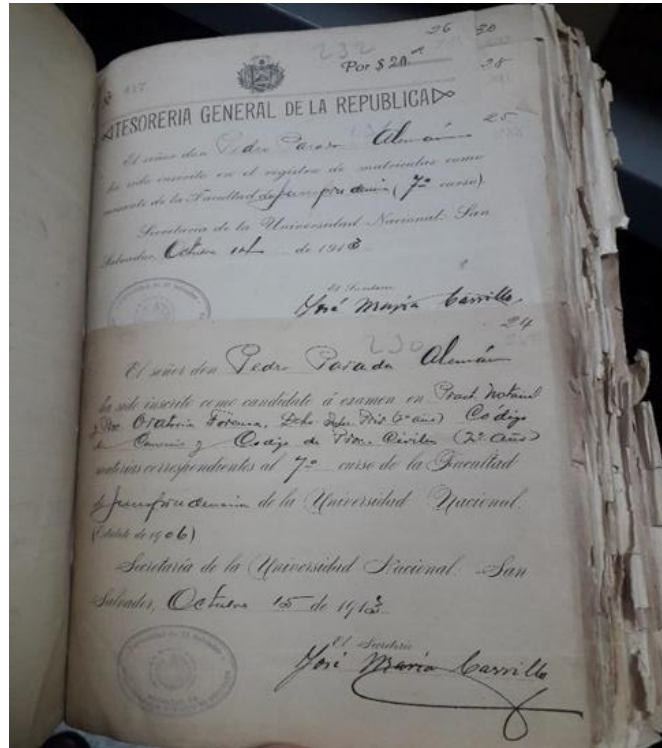 26 30
232
Por $ 20.
28
TESORERIA GENERAL DE LA REPUBLICA
25
El señor don Pedro Parada Alemán
ha sido inscrito en el registro de matrículas como
de la Facultad de Jurisprudencia (7º curso).
Secretaría de la Universidad Nacional. San
Salvador, Octubre 14 de 1913
El Secretario
José María Carrillo
24
230
El señor don Pedro Parada Alemán
ha sido inscrito como candidato á examen en Pract. Notarial
Oratoria Forense, (2º año) Código
de Comercio y Codigo de Proc. Civiles (2º Año)
materias correspondientes al 7º curso de la Facultad
de Jurisprudencia de la Universidad Nacional.
(Estatuto de 1906)
Secretaría de la Universidad Nacional. San
Salvador, Octubre 15 de 1913
El Secretario
José María Carrillo